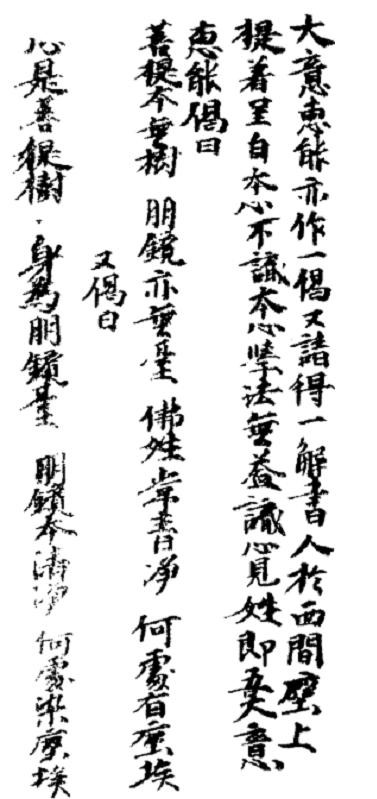 大意惠能亦作一偈又請得一解書人於西間壁上
提著呈自本心不識本心學法無益識心見姓即吾大意
惠能偈曰
菩提本無樹 明鏡亦無臺 佛姓常青淨 何處有塵埃
又偈曰
心是菩提樹 身為明鏡臺 明鏡本清淨 何處染塵埃